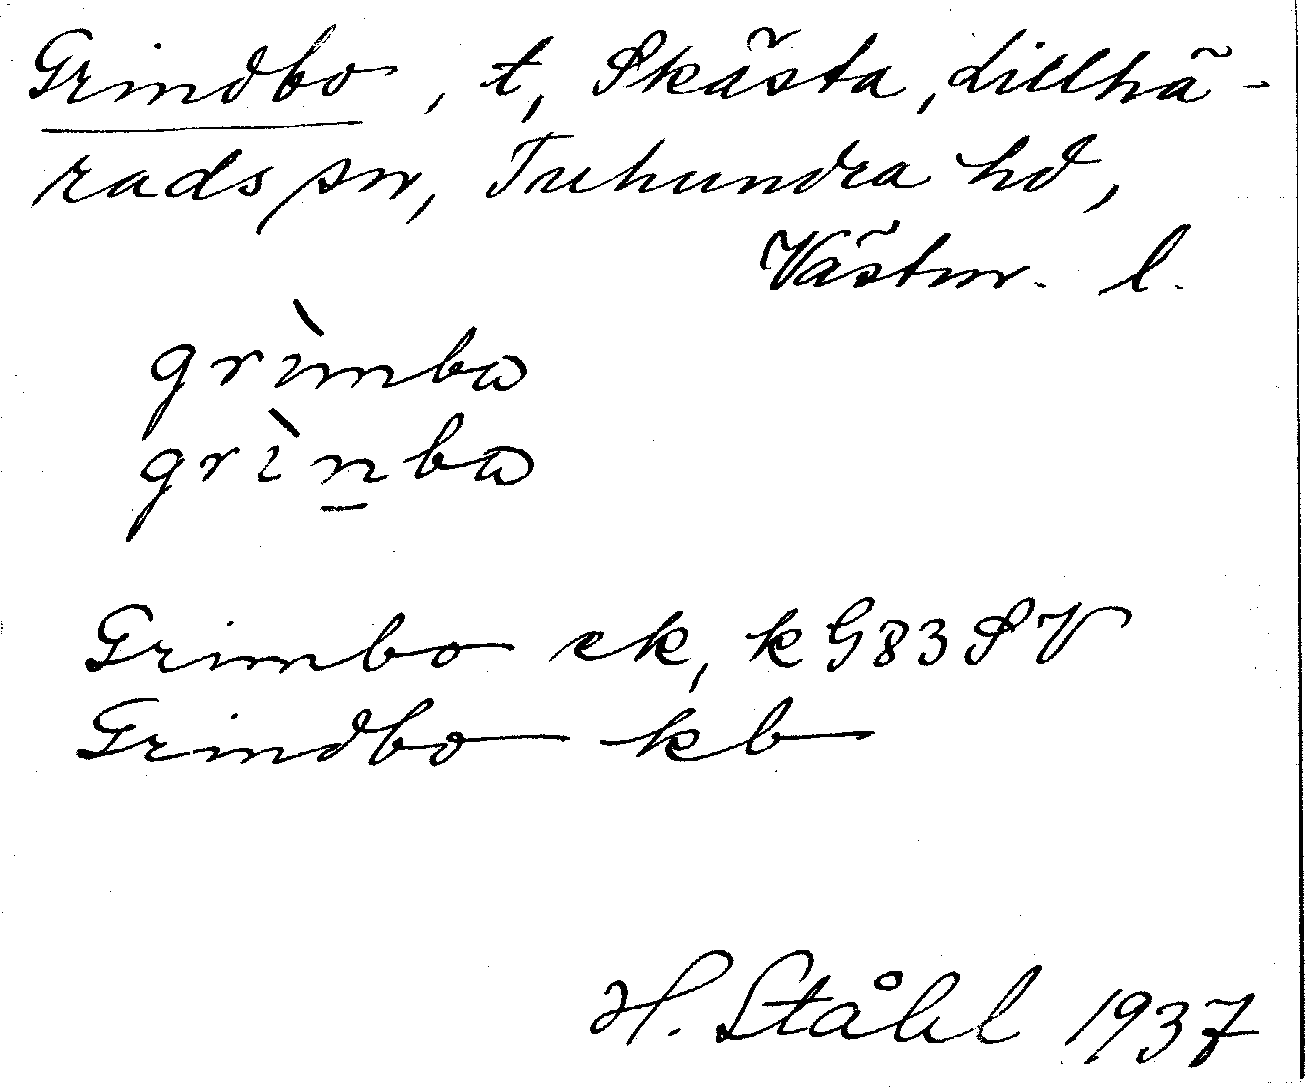 Grindbo, t, Skästa, Lillhä-
rads sn, Tuhundra hd,
Västm. l.
grìmbω
grìn̲bω
Grimbo ek, k G83SV
Grindbo kb
H. Ståhl 1937